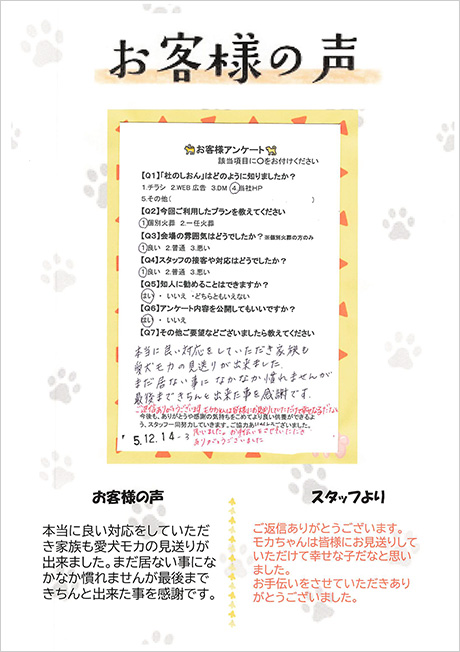 お客様の声
お客様アンケート
該当項目に〇をお付けください
【Q1】「杜のしおん」はどのように知りましたか?
1.チラシ 2.WEB広告 3.DM ④当社HP
5.その他( )
【Q2】今回ご利用したプランを教えてください
①個別火葬 2.一任火葬
【Q3】会場の雰囲気はどうでしたか?※個別火葬の方のみ
①良い 2.普通 3.悪い
【Q4】スタッフの接客や対応はどうでしたか?
①良い 2.普通 3.悪い
【Q5】知人に勧めることはできますか?
はい ・ いいえ ・どちらともいえない
【Q6】アンケート内容を公開してもいいですか?
はい ・ いいえ
【Q7】その他ご要望などございましたら教えてください
本当に良い対応をしていただき家族も
愛犬モカの見送りが出来ました。
まだ居ない事になかなか慣れませんが
最後まできちんと出来た事を感謝です。
ご返信ありがとうございます。モカちゃんは皆様にお見送りしていただけて幸せな子だなと
今後も、ありがとうや感謝の気持ちをこめてより良い供養ができるよ
う、スタッフ一同努力していきます。ご協力ありがとうございました。
思いました。お手伝いをさせていただき
ありがとうございました
5.12.14-3
お客様の声
本当に良い対応をしていただ
き家族も愛犬モカの見送りが
出来ました。まだ居ない事にな
かなか慣れませんが最後まで
きちんと出来た事を感謝です。
スタッフより
ご返信ありがとうございます。
モカちゃんは皆様にお見送りして
いただけて幸せな子だなと思い
ました。
お手伝いをさせていただきあり
がとうございました。